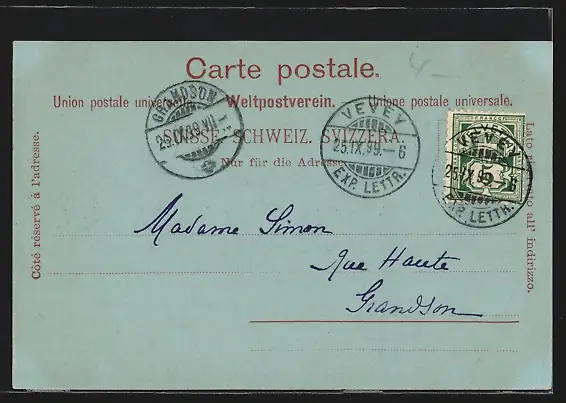 4
Carte postale.
Union postale universelle. Weltpostverein. Unione postale universale.
SUISSE. SCHWEIZ. SVIZZERA.
Nur für die Adresse.
Côté réservé à l'adresse.
GRANDSON
25.IX.99.VII
VEVEY
25.IX.99.-6
EXP. LETTR.
VEVEY
25.IX.99.-6
EXP. LETTR.
5
Madame Simon
Rue Haute
Grandson
all' indirizzo.